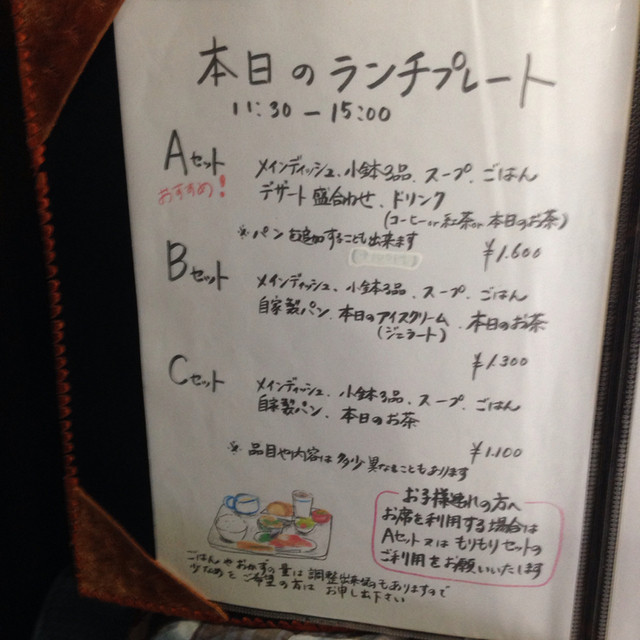 本日のランチプレート
11:30 - 15:00
Aセット
おすすめ!
メインディッシュ、小鉢3品、スープ、ごはん
デザート盛合わせ、ドリンク
(コーヒーor紅茶or本日のお茶)
※パンを追加することも出来ます
¥1.600
Bセット
メインディッシュ、小鉢3品、スープ、ごはん
自家製パン、本日のアイスクリーム、本日のお茶
(ジェラート)
¥1.300
Cセット
メインディッシュ、小鉢3品、スープ、ごはん
自家製パン、本日のお茶
¥1.100
※品目や内容は多少異なることもあります
お子様連れの方へ
お席を利用する場合は
Aセット又はもりもりセットの
ご利用をお願いいたします
ごはんやおかずの量は調整出来るのもありますので
少なめをご希望の方はお申し出下さい